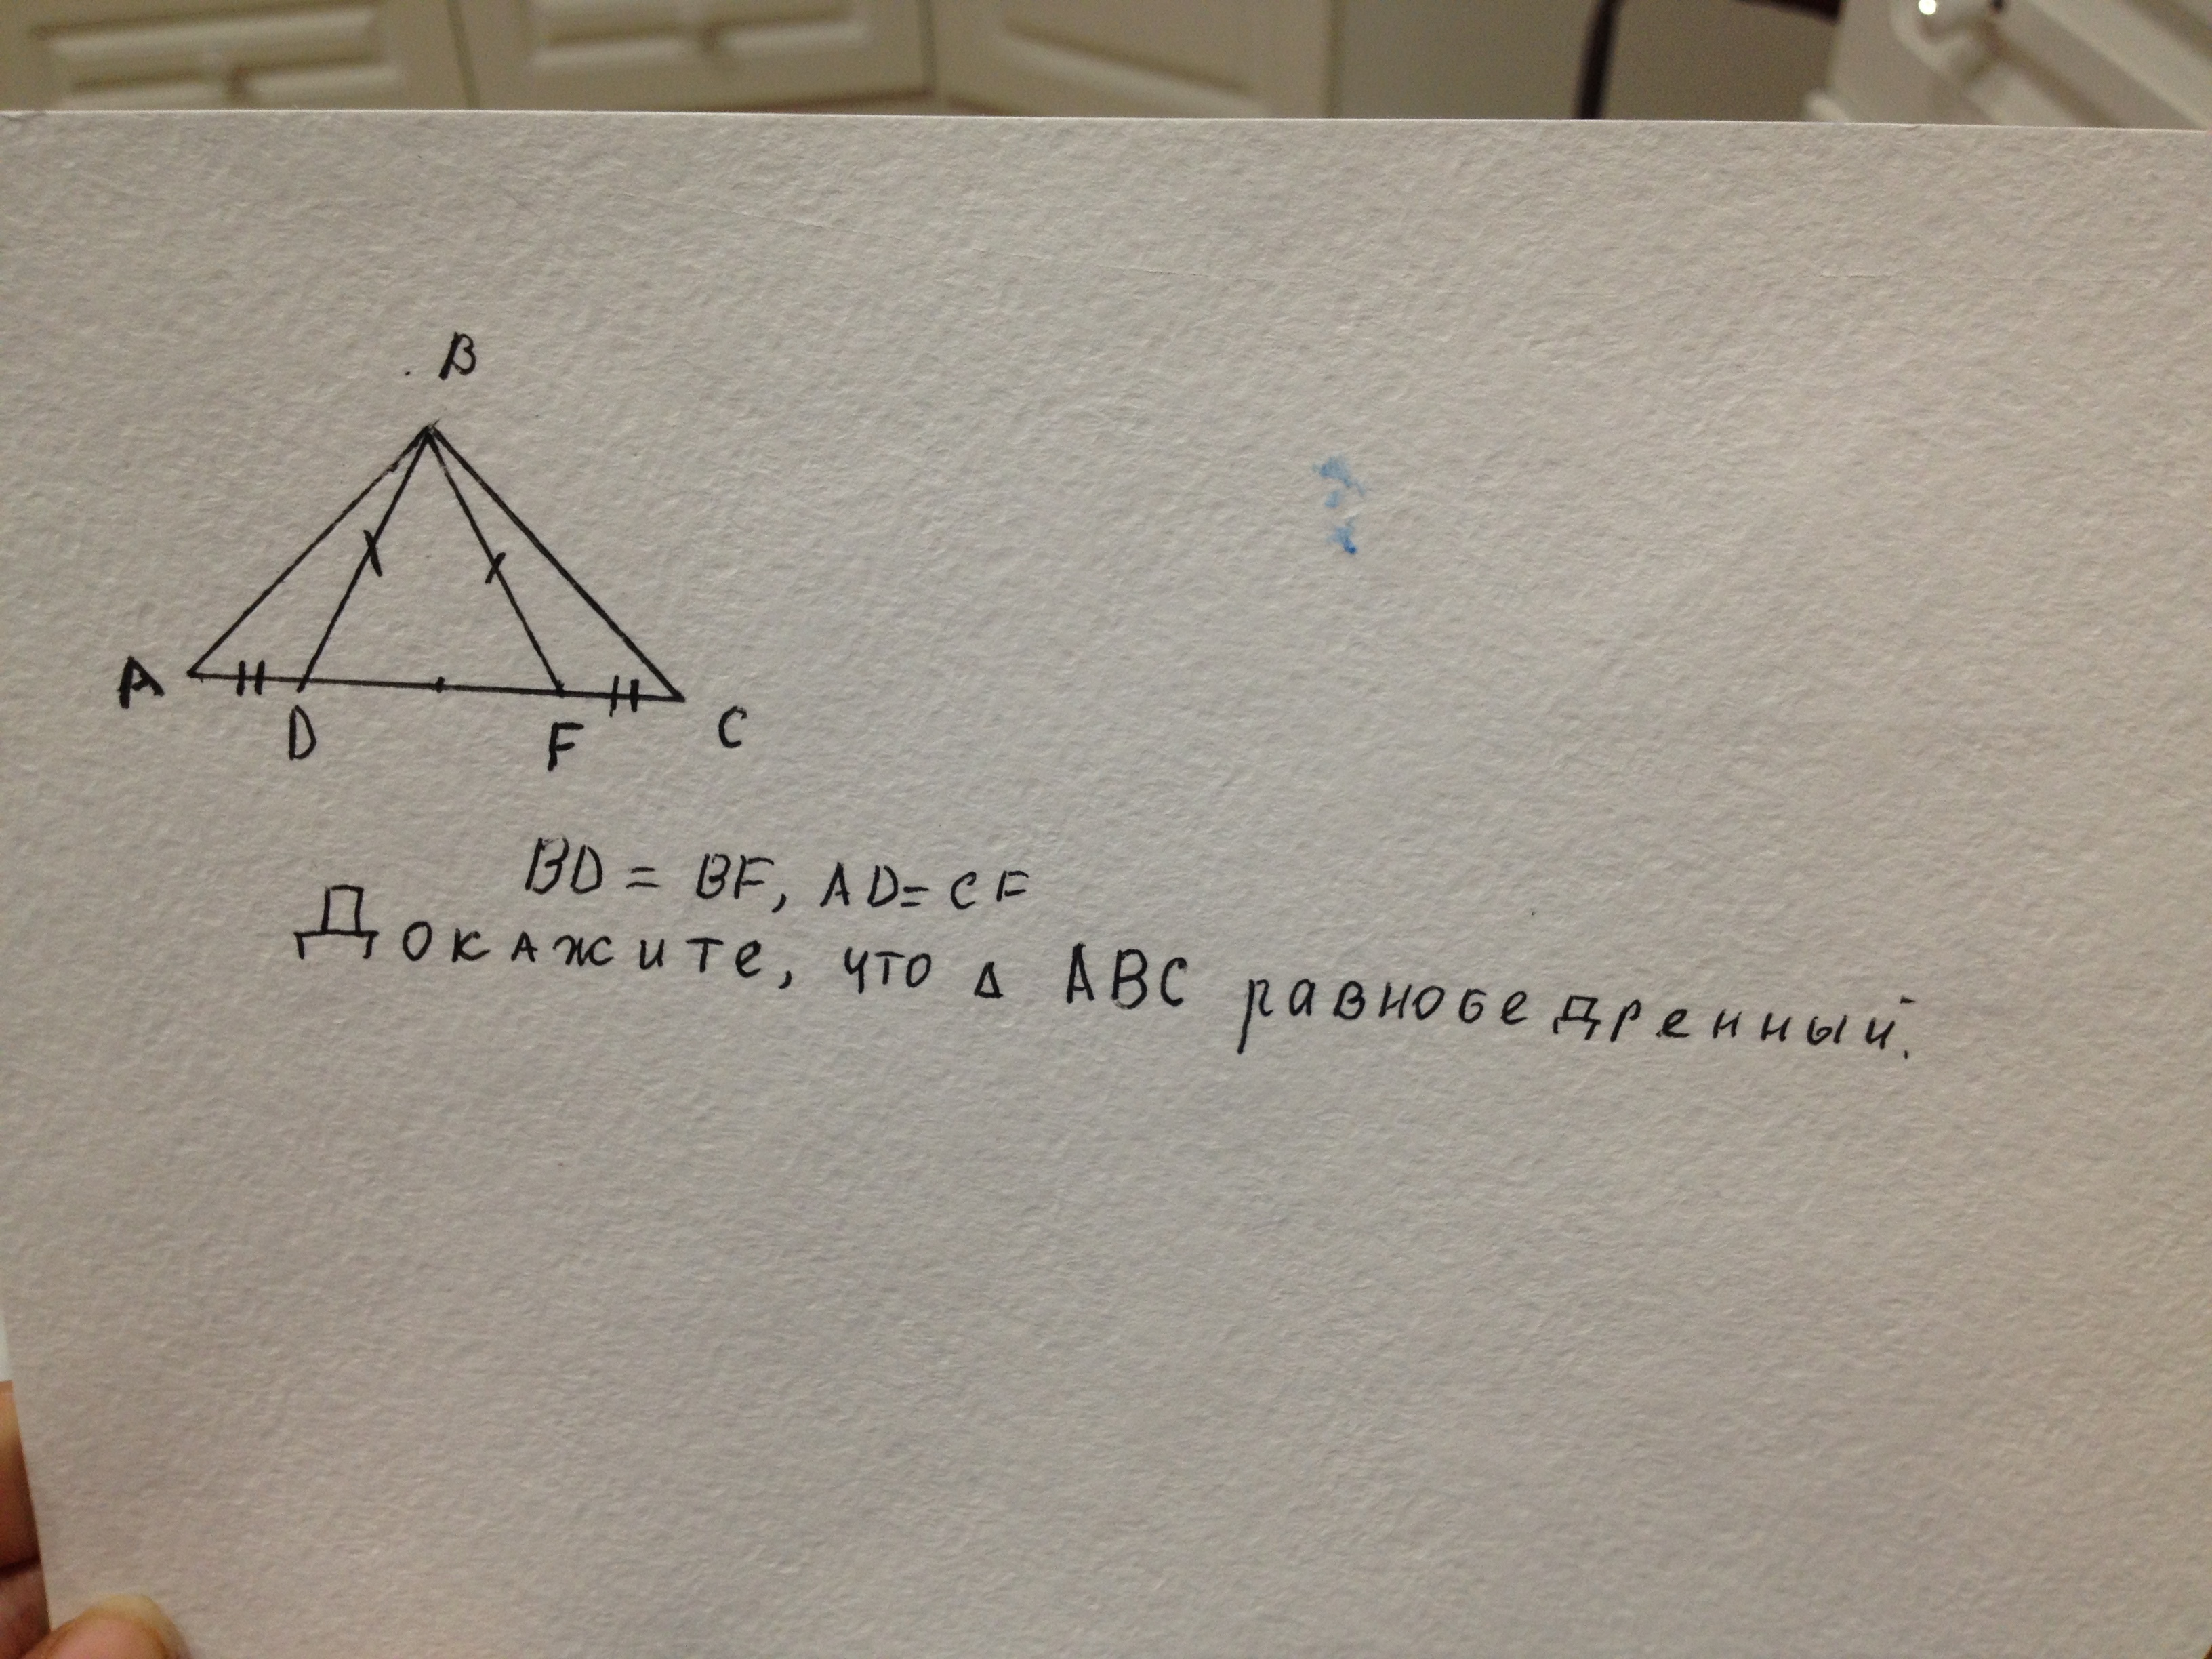 B
A
D
F
C
BD = BF, AD = CF
Докажите, что Δ ABC равнобедренный.